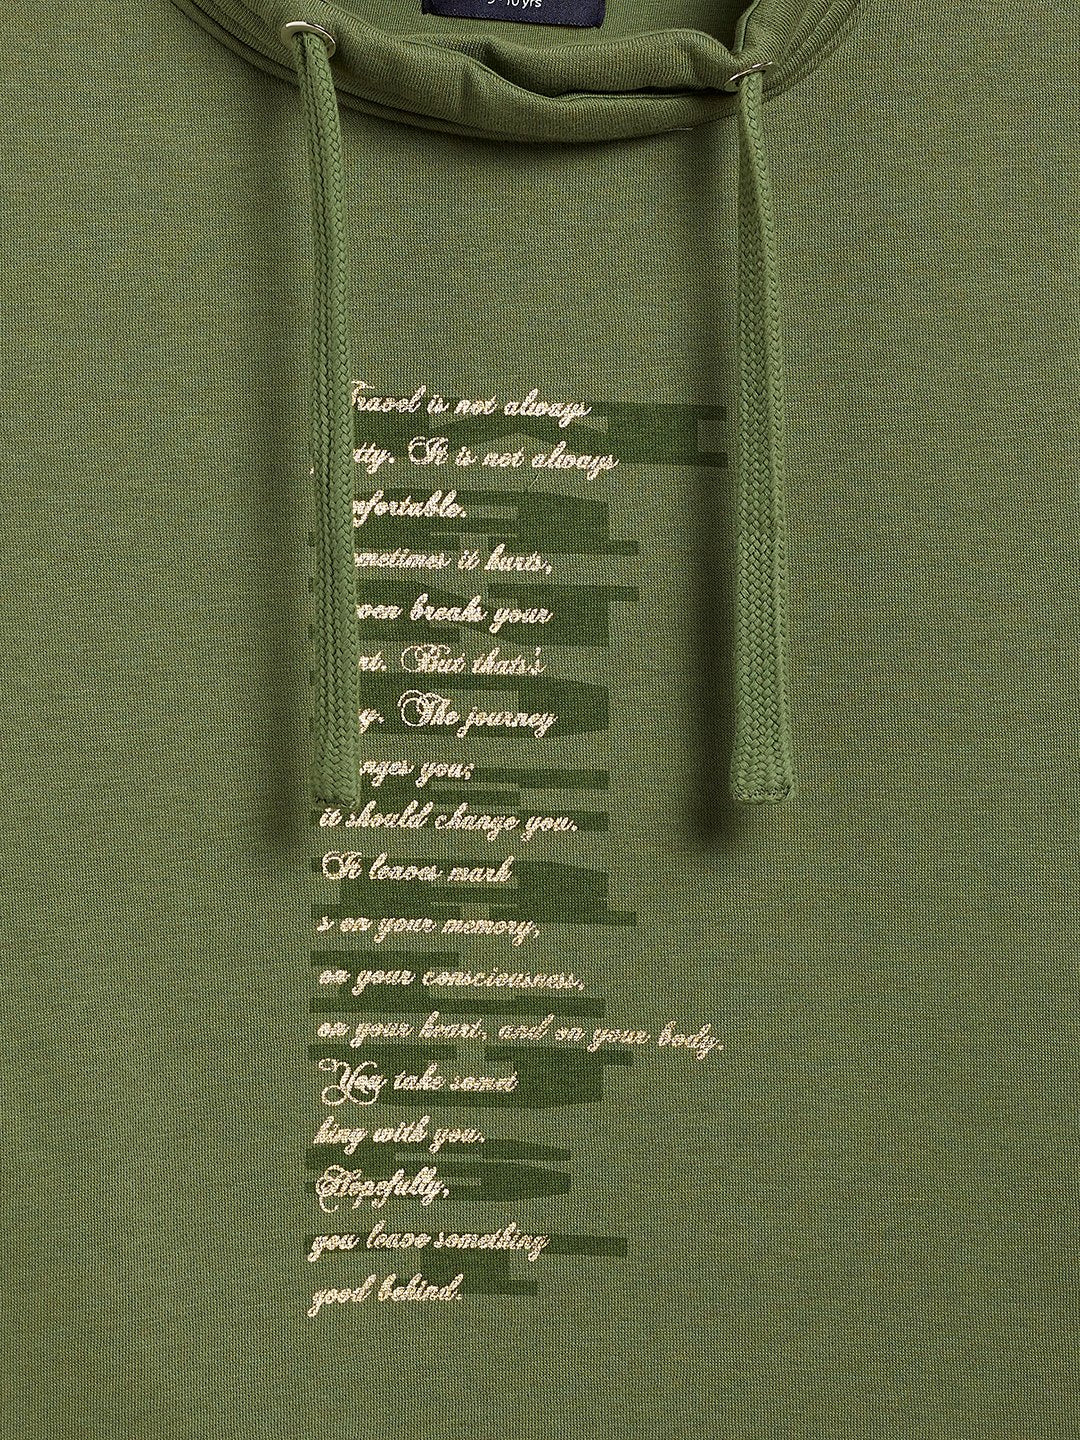 10 yrs
Travel is not always
tty. It is not always
mfortable.
ometimes it hurts,
even breaks your
rt. But thats's
y. The journey
nges you;
it should change you.
It leaves mark
s on your memory,
on your consciousness,
on your heart, and on your body.
You take somet
hing with you.
Hopefully,
you leave something
good behind.